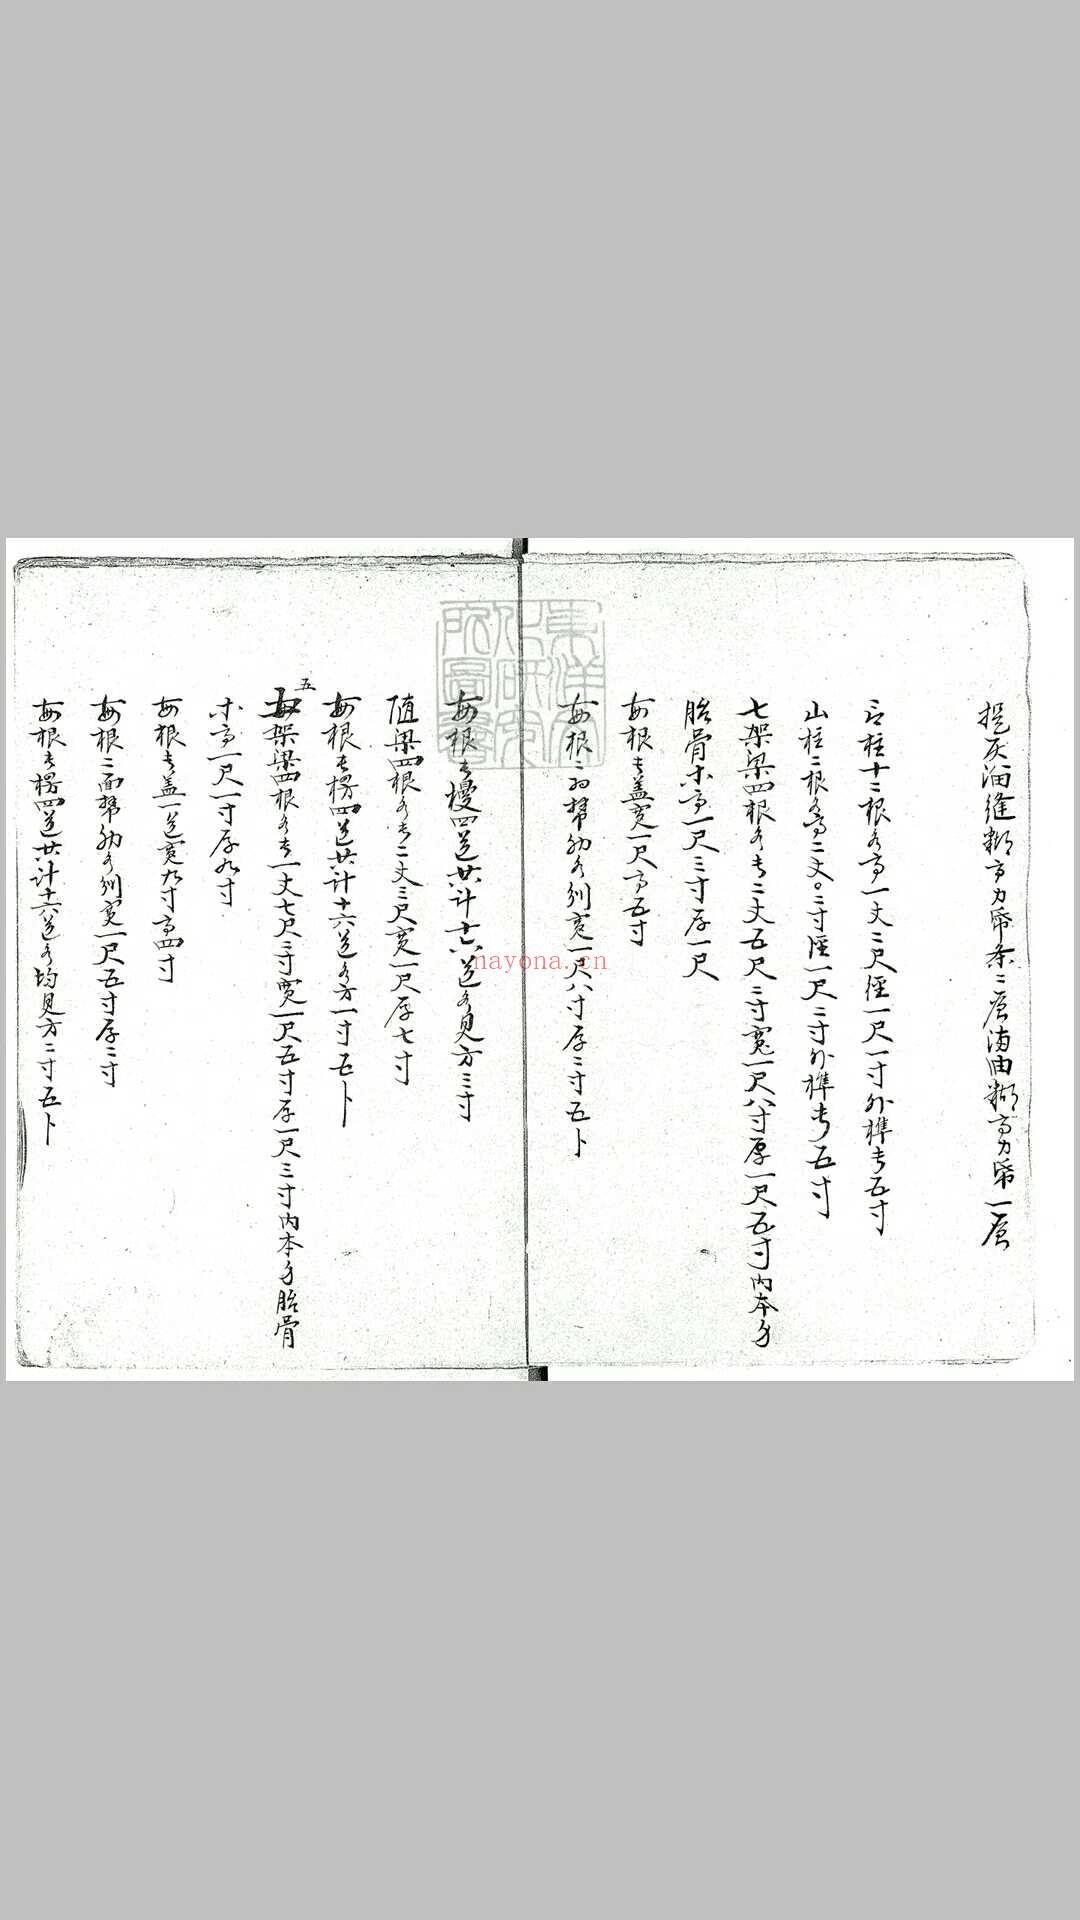 提灰油縫糊高力帋条二层满油糊高力帋一层
柱十二根各高一丈二尺径一尺一寸外榫长五寸
山柱二根各高二丈〇二寸径一尺二寸外榫长五寸
七架梁四根各长二丈五尺二寸寬一尺八寸厚一尺五寸内本身
胎骨木高一尺三寸厚一尺
每根长盖寬一尺高五寸
每根二面帮肋各列寬一尺八寸厚二寸五卜
每根长櫌四道共计十六道各見方三寸
随梁四根各长二丈三尺寬一尺厚七寸
每根长楞四道共计十六道各方一寸五卜
五架梁四根各长一丈七尺三寸寬一尺五寸厚一尺三寸内本身胎骨
木高一尺一寸厚九寸
每根长盖一道寬九寸高四寸
每根二面帮肋各列寬一尺五寸厚二寸
每根长楞四道共计十六道各均見方二寸五卜
nayona.cn